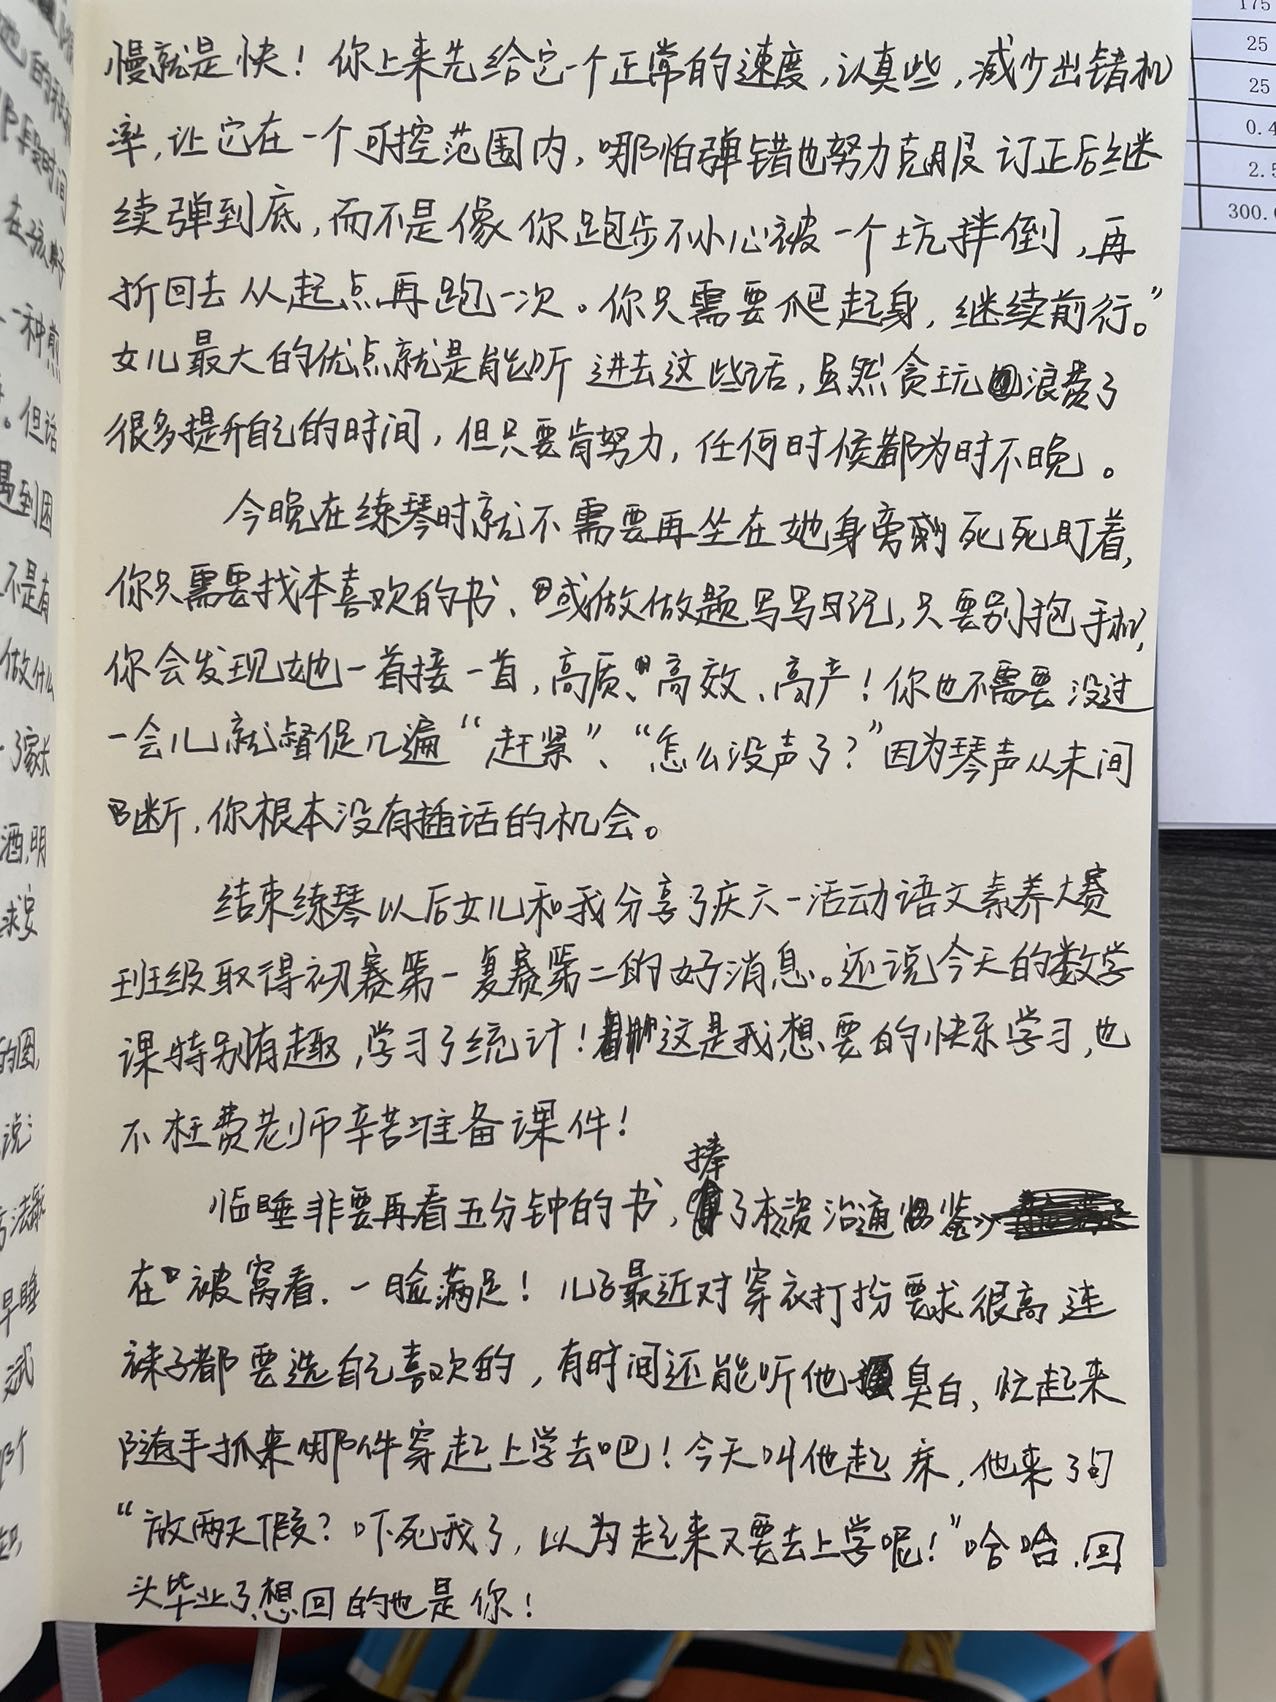 慢就是快！你上来先给它一个正常的速度，认真些，减少出错机
率，让它在一个可控范围内，哪怕弹错也努力克服订正后继
续弹到底，而不是像你跑步不小心被一个坑拌倒，再
折回去从起点再跑一次。你只需要爬起身，继续前行。”
女儿最大的优点就是能听进去这些话，虽然贪玩浪费了
很多提升自己的时间，但只要肯努力，任何时候都为时不晚。
今晚在练琴时就不需要再坐在她身旁死死盯着，
你只需要找本喜欢的书、或做做题写写日记，只要别抱手机，
你会发现她一首接一首，高质、高效、高产！你也不需要没过
一会儿就督促几遍“赶紧”、“怎么没声了？”因为琴声从未间
断，你根本没有插话的机会。
结束练琴以后女儿和我分享了庆六一活动语文素养大赛
班级取得初赛第一复赛第二的好消息。还说今天的数学
课特别有趣，学习了统计！这是我想要的快乐学习，也
不枉费老师辛苦准备课件！
临睡非要再看五分钟的书，捧了本资治通鉴》
在被窝看，一脸满足！儿子最近对穿衣打扮要求很高连
袜子都要选自己喜欢的，有时间还能听他臭白，忙起来
随手抓来哪件穿起上学去吧！今天叫他起床，他来了句
“放两天假？吓死我了，以为起来又要去上学呢！”哈哈，回
头毕业了想回的也是你！
175
25
25
0.4
2.5
300.0